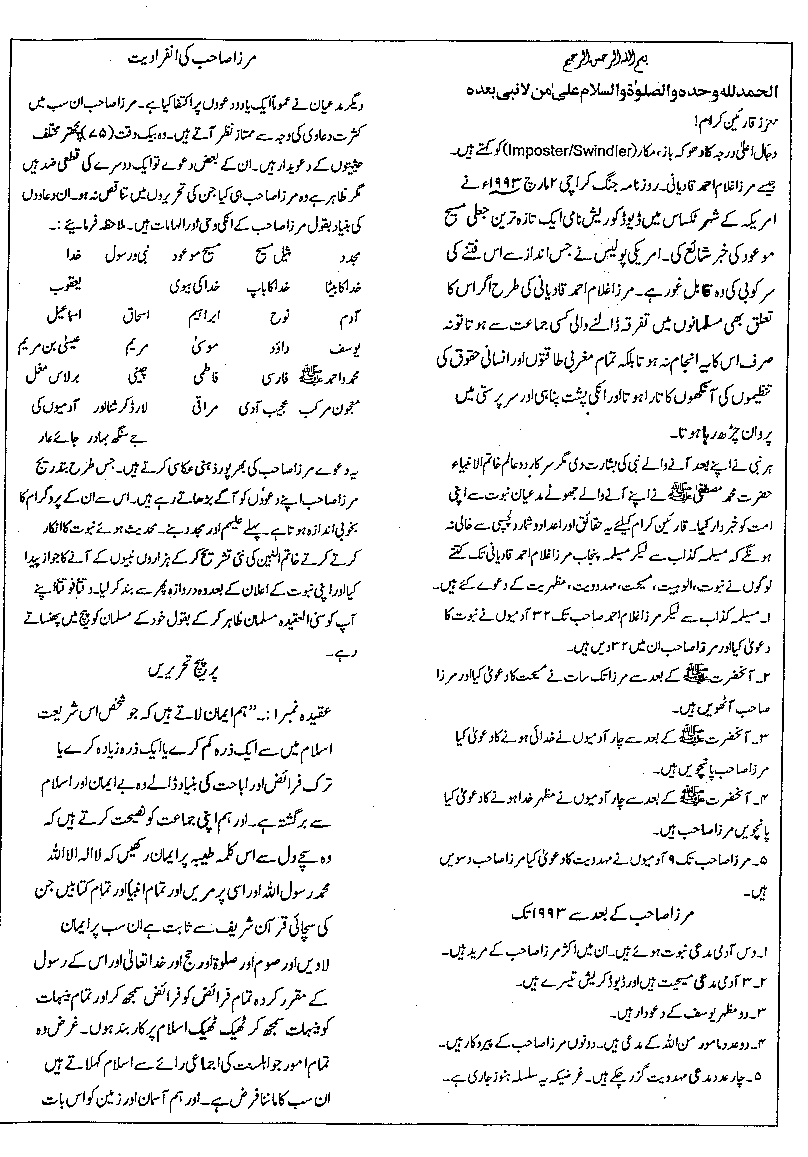 بسم اللہ الرحمن الرحیم
الحمدللہ وحدہ والصلوٰۃ والسلام علیٰ من لا نبی بعدہ
معزز قارئین کرام!
دجال اعلیٰ درجہ کا دھوکہ باز، مکار (Imposter/Swindler) کو کہتے ہیں۔
جیسے مرزا غلام احمد قادیانی۔ روزنامہ جنگ کراچی ۲ مارچ ۱۹۹۳ء نے
امریکہ کے شہر ٹکساس میں ڈیوڈ کوریش نامی ایک تازہ ترین جعلی مسیح
موعود کی خبر شائع کی۔ امریکی پولیس نے جس انداز سے اس فتنے کی
سرکوبی کی وہ قابل غور ہے۔ مرزا غلام احمد قادیانی کی طرح اگر اس کا
تعلق بھی مسلمانوں میں تفرقہ ڈالنے والی کسی جماعت سے ہوتا تو نہ
صرف اس کا یہ انجام نہ ہوتا بلکہ تمام مغربی طاقتوں اور انسانی حقوق کی
تنظیموں کی آنکھوں کا تارا ہوتا اور انکی پشت پناہی اور سرپرستی میں
پروان چڑھ رہا ہوتا۔
ہر نبی نے اپنے بعد آنے والے نبی کی بشارت دی مگر سرکار دو عالم خاتم الانبیاء
حضرت محمد مصطفیٰ ﷺ نے اپنے آنے والے جھوٹے مدعیان نبوت سے اپنی
امت کو خبردار کیا۔ قارئین کرام کیلئے یہ حقائق اور اعداد و شمار دلچسپی سے خالی نہ
ہونگے کہ مسیلمہ کذاب سے لیکر مسیلمہ پنجاب مرزا غلام احمد قادیانی تک کتنے
لوگوں نے نبوت، الوہیت، مسیحت، مہدویت، مظہریت کے دعوے کئے ہیں۔
۱۔ مسیلمہ کذاب سے لیکر مرزا غلام احمد صاحب تک ۳۲ آدمیوں نے نبوت کا
دعویٰ کیا اور مرزا صاحب ان میں ۳۲ دیں ہیں۔
۲۔ آنحضرت ﷺ کے بعد سے مرزا تک سات نے مسیحت کا دعویٰ کیا اور مرزا
صاحب آٹھویں ہیں۔
۳۔ آنحضرت ﷺ کے بعد سے چار آدمیوں نے خدائی ہونے کا دعویٰ کیا
مرزا صاحب پانچویں ہیں۔
۴۔ آنحضرت ﷺ کے بعد سے چار آدمیوں نے مظہر خدا ہونے کا دعویٰ کیا
پانچویں مرزا صاحب ہیں۔
۵۔ مرزا صاحب تک ۹ آدمیوں نے مہدویت کا دعویٰ کیا مرزا صاحب دسویں
ہیں۔
مرزا صاحب کے بعد سے ۱۹۹۳ تک
۱۔ دس آدمی مدعی نبوت ہوئے ہیں۔ ان میں اکثر مرزا صاحب کے مرید ہیں۔
۲۔ ۳ آدمی مدعی مسیحیت ہیں اور ڈیوڈ کریش تیسرے ہیں۔
۳۔ دو مظہر یوسف کے دعودار ہیں۔
۴۔ دو عدد مامور من اللہ کے مدعی ہیں۔ دونوں مرزا صاحب کے پیروکار ہیں۔
۵۔ چار عدد مدعی مہدویت گزر چکے ہیں۔ غرضیکہ یہ سلسلہ ہنوز جاری ہے۔
مرزا صاحب کی انفرادیت
دیگر مدعیان نے عموماً ایک یا دو دعوؤں پر اکتفا کیا ہے۔ مرزا صاحب ان سب میں
کثرت دعاوی کی وجہ سے ممتاز نظر آتے ہیں۔ وہ بیک وقت (۷۵) پچھتر مختلف
حیثیتوں کے دعویدار ہیں۔ ان کے بعض دعوے تو ایک دوسرے کی قطعی ضد ہیں
مگر ظاہر ہے وہ مرزا صاحب ہی کیا جن کی تحریروں میں تناقص نہ ہو۔ ان دعاووں
کی بنیاد بقول مرزا صاحب کے انکی وحی اور الہامات ہیں۔ ملاحظہ فرمائیے :۔
مجدد مثیل مسیح مسیح موعود نبی و رسول خدا
خدا کا بیٹا خدا کا باپ خدا کی بیوی یعقوب
آدم نوح ابراہیم اسحاق اسماعیل
یوسف داؤد موسیٰ مریم عیسیٰ بن مریم
محمد و احمد ﷺ فارسی فاطمی چینی برلاس مغل
معجون مرکب عجیب آدمی مراقی لارڈ کرشنا اور آدمیوں کی
جے سنگھ بہادر جائے عار
یہ دعوے مرزا صاحب کی بھرپور ذہنی عکاسی کرتے ہیں۔ جس طرح بتدریج
مرزا صاحب اپنے دعوؤں کو آگے بڑھاتے رہے ہیں۔ اس سے ان کے پروگرام کا
بخوبی اندازہ ہوتا ہے۔ پہلے علیم اور مجدد بنے۔ محدیث ہوئے نبوت کا انکار
کرتے کرتے خاتم النبین کی نئی تشریح کر کے ہزاروں نبیوں کے آنے کا جواز پیدا
کیا اور اپنی نبوت کے اعلان کے بعد وہ دروازہ پھر سے بند کر لیا۔ وقتاً فوقتاً اپنے
آپ کو سنی العقیدہ مسلمان ظاہر کر کے بقول خود کے مسلمان کو پیچ میں پھنساتے
رہے۔
پر پیچ تحریریں
عقیدہ نمبر ۱ :۔ ”ہم ایمان لاتے ہیں کہ جو شخص اس شریعت
اسلام میں سے ایک ذرہ کم کرے یا ایک ذرہ زیادہ کرے یا
ترک فرائض اور اباحت کی بنیاد ڈالے وہ بے ایمان اور اسلام
سے برگشتہ ہے۔ اور ہم اپنی جماعت کو نصیحت کرتے ہیں کہ
وہ سچے دل سے اس کلمہ طیبہ پر ایمان رکھیں کہ لا الہ الا اللہ
محمد رسول اللہ اور اسی پر مریں اور تمام انبیا اور تمام کتابیں جن
کی سچائی قرآن شریف سے ثابت ہے ان سب پر ایمان
لاویں اور صوم اور صلوٰۃ اور حج اور خدا تعالیٰ اور اس کے رسول
کے مقرر کردہ تمام فرائض کو فرائض سمجھ کر اور تمام منہیات
کو منہیات سمجھ کر ٹھیک ٹھیک اسلام پر کار بند ہوں۔ غرض وہ
تمام امور جو اہلسنت کی اجماعی رائے سے اسلام کہلاتے ہیں
ان سب کا ماننا فرض ہے۔ اور ہم آسمان اور زمین کو اس بات